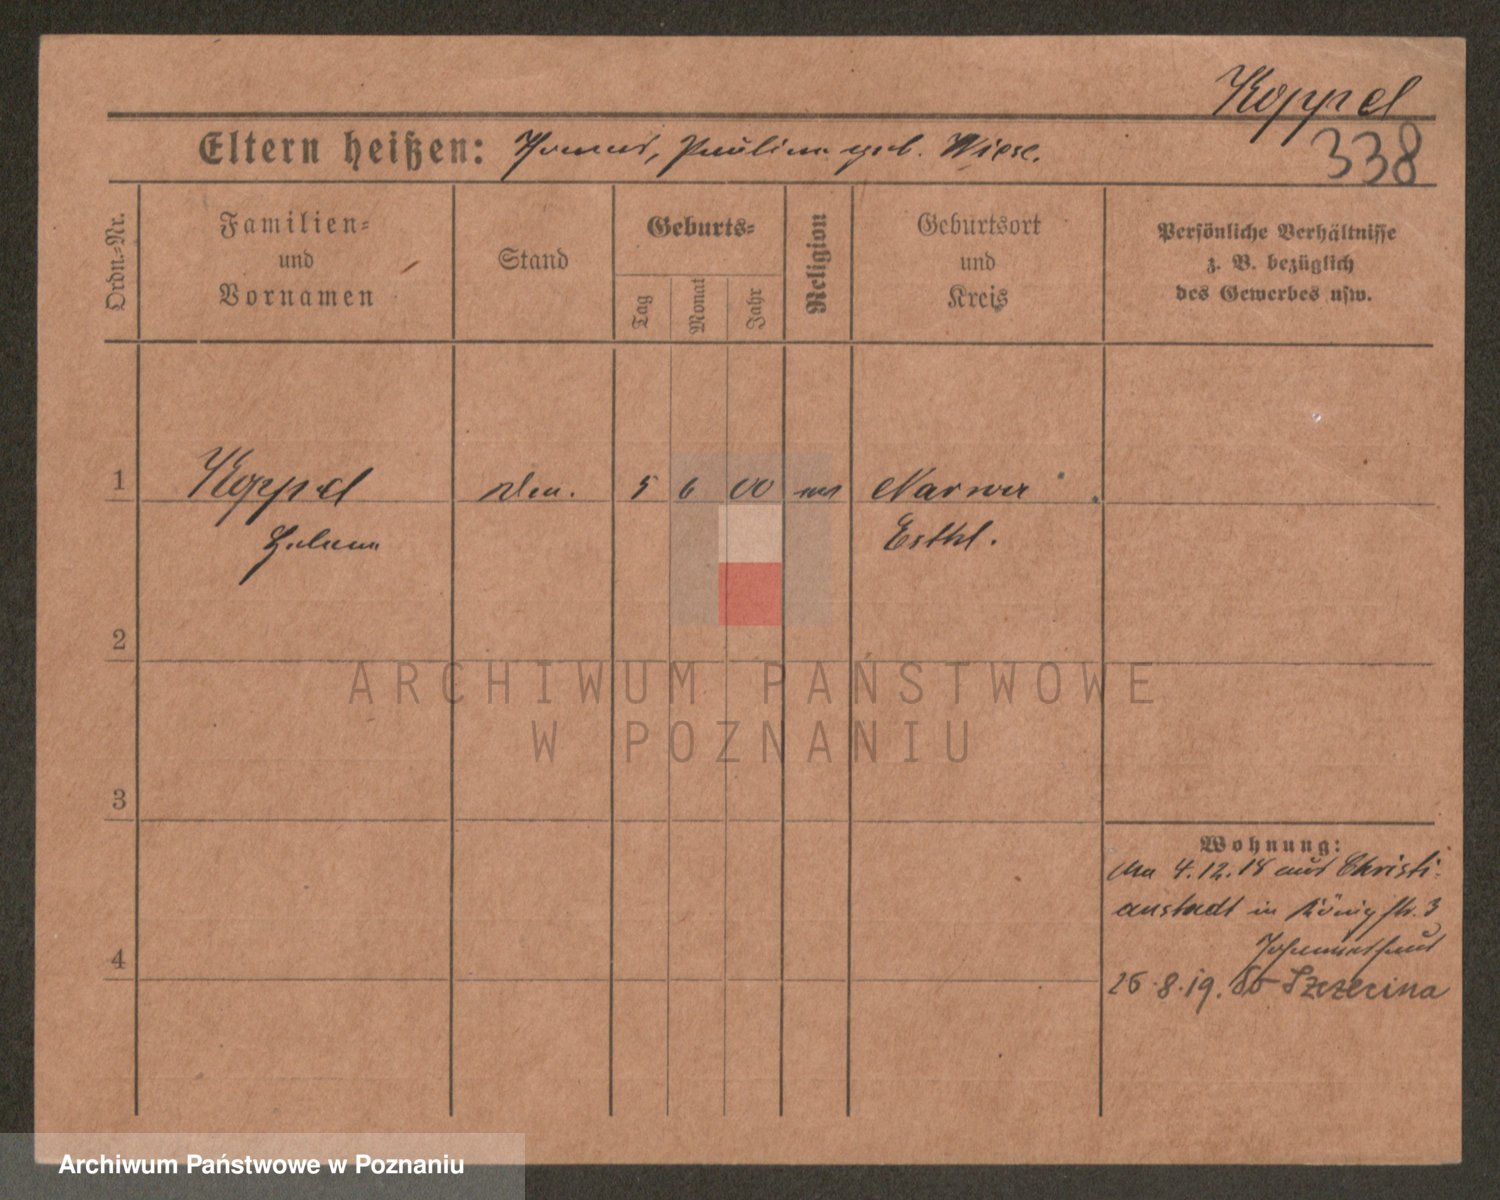 Koppel
Eltern heißen: Pauline geb. Wiese.
338
Ordn.-Nr.
Familien-
und
Vornamen
Stand
Geburts-
Tag
Monat
Jahr
Religion
Geburtsort
und
Kreis
Persönliche Verhältnisse
z. B. bezüglich
des Gewerbes usw.
1
Koppel
5
6
00
Narwa
Helene
Esthl.
2
ARCHIWUM PAŃSTWOWE
W POZNANIU
3
Wohnung:
4.12.18 aus Christi-
anstadt in Königstr. 3
4
26.8.19. Szczecina
Archiwum Państwowe w Poznaniu